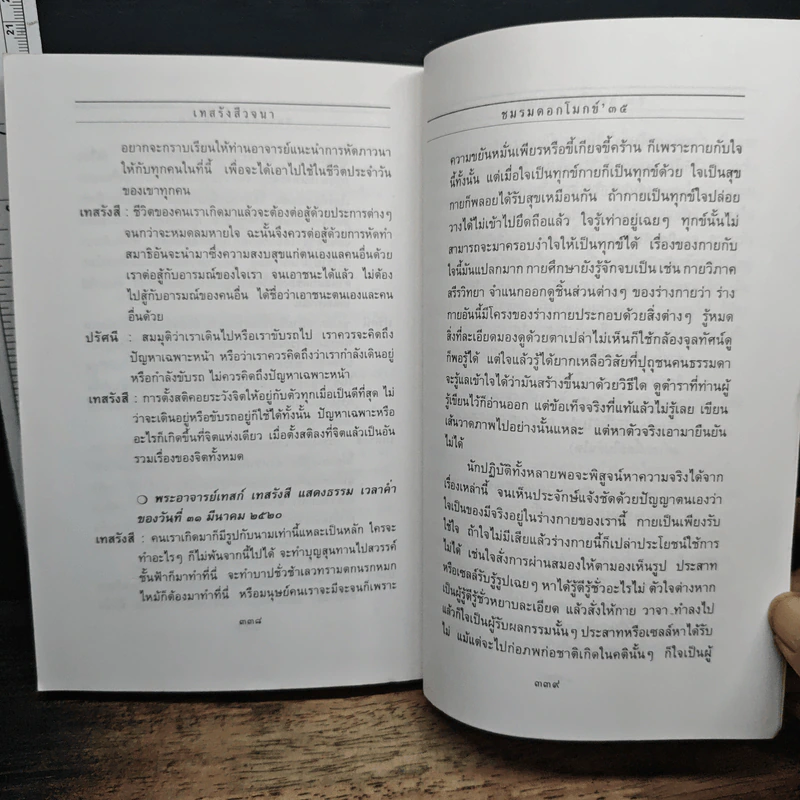 21
20
เทสรังสีวจนา
อยากจะกราบเรียนให้ท่านอาจารย์แนะนำการหัดภาวนา
ให้กับทุกคนในที่นี้ เพื่อจะได้เอาไปใช้ในชีวิตประจำวัน
ของเขาทุกคน
เทสรังสี : ชีวิตของคนเราเกิดมาแล้วจะต้องต่อสู้ด้วยประการต่างๆ
จนกว่าจะหมดลมหายใจ ฉะนั้นจึงควรต่อสู้ด้วยการหัดทำ
สมาธิอันจะนำมาซึ่งความสงบสุขแก่ตนเองแลคนอื่นด้วย
เราต่อสู้กับอารมณ์ของใจเรา จนเอาชนะได้แล้ว ไม่ต้อง
ไปสู้กับอารมณ์ของคนอื่น ได้ชื่อว่าเอาชนะตนเองและคน
อื่นด้วย
ปรัศนี : สมมุติว่าเราเดินไปหรือเราขับรถไป เราควรจะคิดถึง
ปัญหาเฉพาะหน้า หรือว่าเราควรคิดถึงว่าเรากำลังเดินอยู่
หรือกำลังขับรถ ไม่ควรคิดถึงปัญหาเฉพาะหน้า
เทสรังสี : การตั้งสติคอยระวังจิตให้อยู่กับตัวทุกเมื่อเป็นดีที่สุด ไม่
ว่าจะเดินอยู่หรือขับรถอยู่ก็ใช้ได้ทั้งนั้น ปัญหาเฉพาะหรือ
อะไรก็เกิดขึ้นที่จิตแห่งเดียว เมื่อตั้งสติลงที่จิตแล้วเป็นอัน
รวมเรื่องของจิตทั้งหมด
❍ พระอาจารย์เทสก์ เทสรังสี แสดงธรรม เวลาค่ำ
ของวันที่ ๓๑ มีนาคม ๒๕๒๐
เทสรังสี : คนเราเกิดมาก็มีรูปกับนามเท่านี้แหละเป็นหลัก ใครจะ
ทำอะไรๆ ก็ไม่พ้นจากนี้ไปได้ จะทำบุญสุนทานไปสวรรค์
ชั้นฟ้าก็มาทำที่นี่ จะทำบาปชั่วช้าเลวทรามตกนรกหมก
ไหม้ก็ต้องมาทำที่นี่ หรือมนุษย์คนเราจะมีจะจนก็เพราะ
๓๓๘
ชมรมดอกโมกข์'๓๕
ความขยันหมั่นเพียรหรือขี้เกียจขี้คร้าน ก็เพราะกายกับใจ
นี้ทั้งนั้น แต่เมื่อใจเป็นทุกข์กายก็เป็นทุกข์ด้วย ใจเป็นสุข
กายก็พลอยได้รับสุขเหมือนกัน ถ้ากายเป็นทุกข์ใจปล่อย
วางได้ไม่เข้าไปยึดถือแล้ว ใจรู้เท่าอยู่เฉยๆ ทุกข์นั้นไม่
สามารถจะมาครอบงำใจให้เป็นทุกข์ได้ เรื่องของกายกับ
ใจนี้มันแปลกมาก กายศึกษายังรู้จักจบเป็น เช่น กายวิภาค
สรีรวิทยา จำแนกออกดูชิ้นส่วนต่างๆ ของร่างกายว่า ร่าง
กายอันนี้มีโครงของร่างกายประกอบด้วยสิ่งต่างๆ รู้หมด
สิ่งที่ละเอียดมองดูด้วยตาเปล่าไม่เห็นก็ใช้กล้องจุลทัศน์ดู
ก็พอรู้ได้ แต่ใจแล้วรู้ได้ยากเหลือวิสัยที่ปุถุชนคนธรรมดา
จะรู้แลเข้าใจได้ว่ามันสร้างขึ้นมาด้วยวิธีใด ดูตำราที่ท่านผู้
รู้เขียนไว้ก็อ่านออก แต่ข้อเท็จจริงที่แท้แล้วไม่รู้เลย เขียน
เส้นวาดภาพไปอย่างนั้นแหละ แต่หาตัวจริงเอามายืนยัน
ไม่ได้
นักปฏิบัติทั้งหลายพอจะพิสูจน์หาความจริงได้จาก
เรื่องเหล่านี้ จนเห็นประจักษ์แจ้งชัดด้วยปัญญาตนเองว่า
ใจเป็นของมีจริงอยู่ในร่างกายของเรานี้ กายเป็นเพียงรับ
ใช้ใจ ถ้าใจไม่มีเสียแล้วร่างกายนี้ก็เปล่าประโยชน์ใช้การ
ไม่ได้ เช่นใจสั่งการผ่านสมองให้ตามองเห็นรูป ประสาท
หรือเซลล์รับรู้รูปเฉยๆ หาได้รู้ดีรู้ชั่วอะไรไม่ ตัวใจต่างหาก
เป็นผู้รู้ดีรู้ชั่วหยาบละเอียด แล้วสั่งให้กาย วาจา ทำลงไป
แล้วก็ใจเป็นผู้รับผลกรรมนั้นๆ ประสาทหรือเซลล์หาได้รับ
ไม่ แม้แต่จะไปก่อภพก่อชาติเกิดในคตินั้นๆ ก็ใจเป็นผู้
๓๓๙